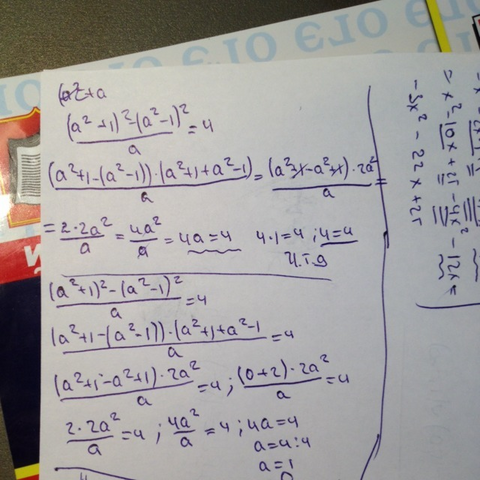 a²+a
(a²+1)²-(a²-1)²/a=4
(a²+1-(a²-1))·(a²+1+a²-1)/a=(a²+1-a²+1)·2a²/a=
=2·2a²/a=4a²/a=4a=4 4·1=4; 4=4
ч.т.д
(a²+1)²-(a²-1)²/a=4
(a²+1-(a²-1))·(a²+1+a²-1/a=4
(a²+1-a²+1)·2a²/a=4; (0+2)·2a²/a=4
2·2a²/a=4; 4a²/a=4; 4a=4
a=4:4
a=1
=x²-10x+25-4x²-12x=
-3x²-22x+25